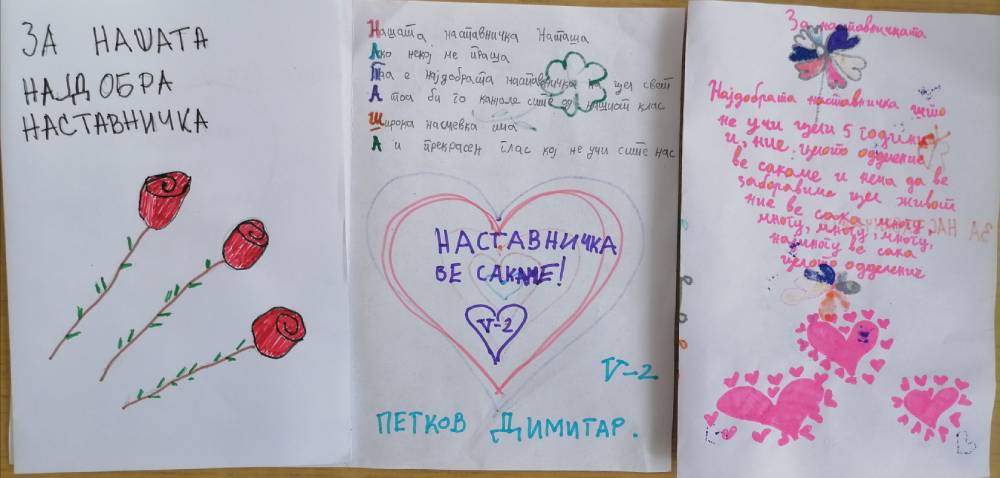 ЗА НАШАТА
НАЈДОБРА
НАСТАВНИЧКА
Нашата наставничка Наташа
Ако некој ме праша
Таа е најдобрата наставничка на цел свет
А тоа би го кажале сите од нашиот клас
Широка насмевка има
А и прекрасен глас кој не учи сите нас
НАСТАВНИЧКА
ВЕ САКАМЕ!
V-2
V-2
ПЕТКОВ ДИМИТАР.
За наставничката
Најдобрата наставничка што
не учи цели 5 години
и, ние целото одделение
ве сакаме и нема да ве
заборавиме цел живот
ние ве сака многу,
многу, многу, многу,
најмногу ве сака
целото одделение